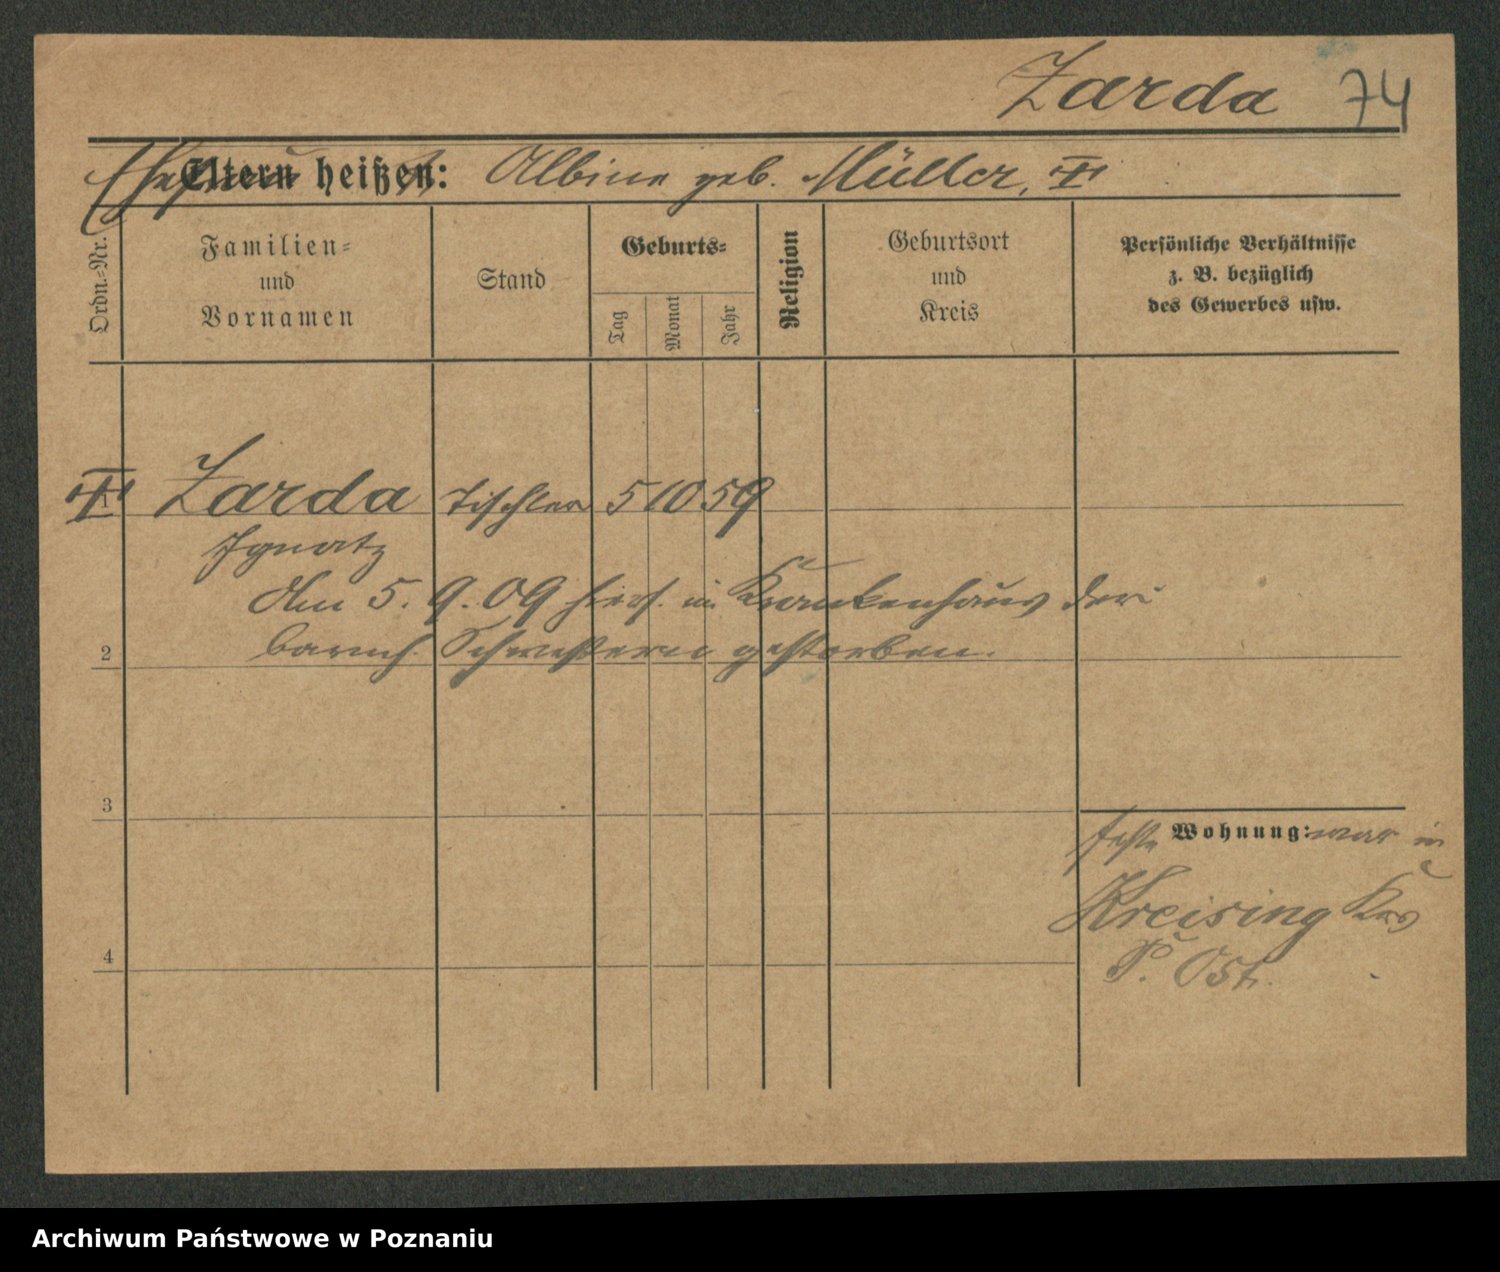 Zarda 74
Eltern heißen: Albine geb. Müller, †
Ordn.-Nr.
Familien-
und
Vornamen
Stand
Geburts-
Tag
Monat
Jahr
Religion
Geburtsort
und
Kreis
Persönliche Verhältnisse
z. B. bezüglich
des Gewerbes usw.
† 1 Zarda Tischler 5 10 59
Ignatz
Am 5. 9. 09 hiers. im Krankenhaus der
2 barmh. Schwestern gestorben.
3
feste Wohnung: war in
Kreising Krs
4 P. Ost.
Archiwum Państwowe w Poznaniu